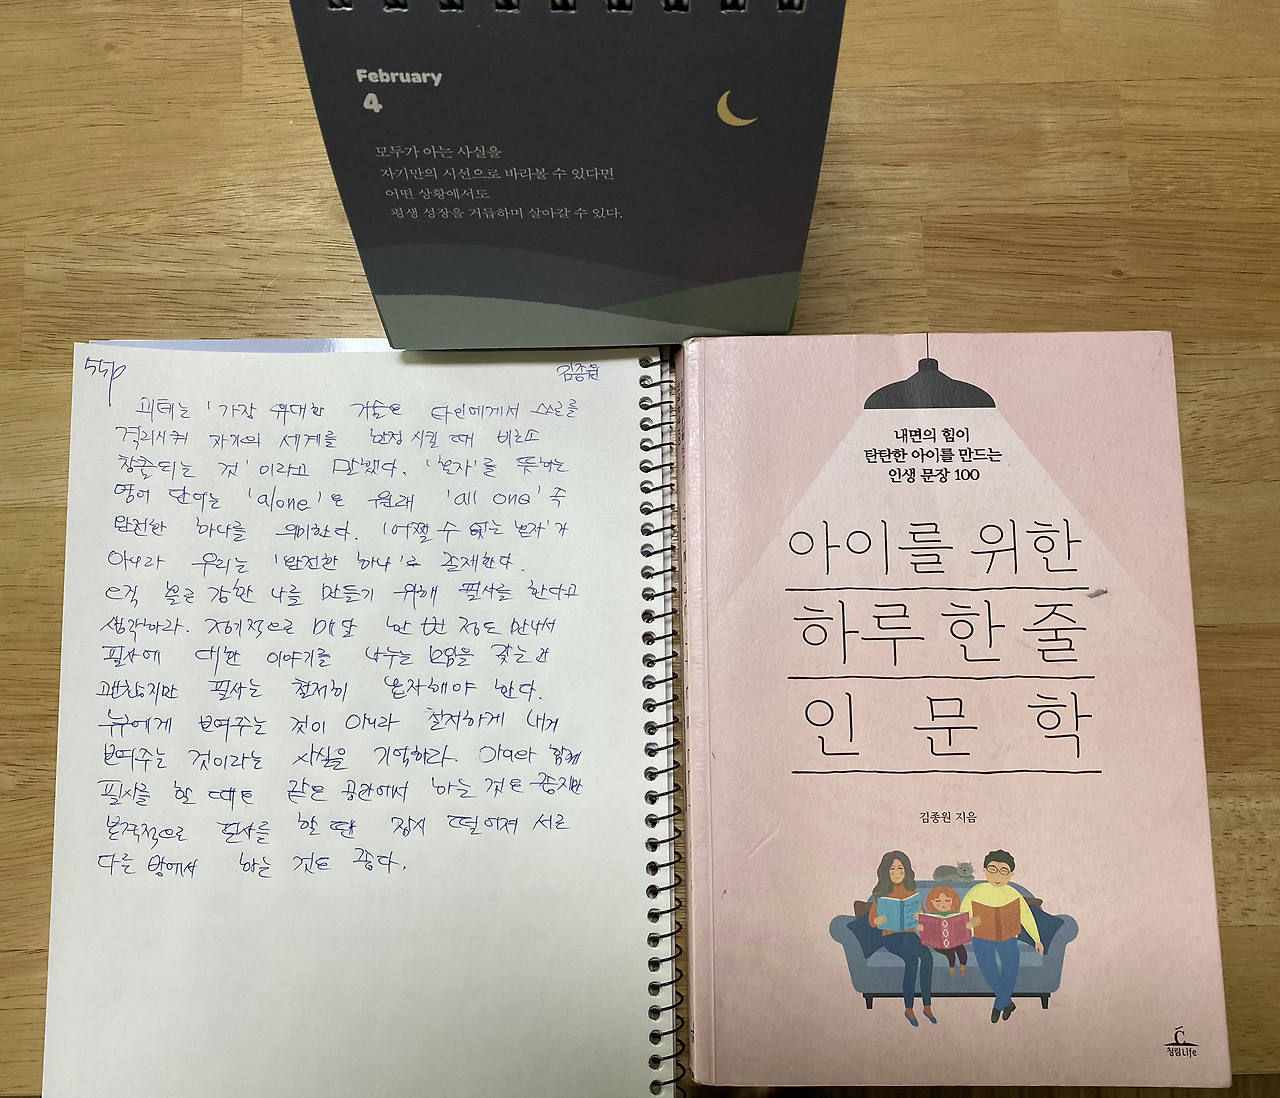 February
4
모두가 아는 사실을
자기만의 시선으로 바라볼 수 있다면
어떤 상황에서도
평생 성장을 거듭하며 살아갈 수 있다.
55p
김종원
괴테는 '가장 위대한 기술은 타인에게서 스스로를
격리시켜 자기의 세계를 한정 시킬 때 비로소
창출되는 것' 이라고 말했다. '혼자'를 뜻하는
영어 단어는 'alone'은 원래 'all one' 즉
완전한 하나를 의미한다. '어쩔 수 없는 혼자'가
아니라 우리는 '완전한 하나'로 존재한다.
오직 홀로 강한 나를 만들기 위해 필사를 한다고
생각하라. 정기적으로 매달 한 번 정도 만나서
필사에 대한 이야기를 나누는 모임을 갖는 건
괜찮지만 필사는 철저히 혼자해야 한다.
누구에게 보여주는 것이 아니라 철저하게 내게
보여주는 것이라는 사실을 기억하라. 아이와 함께
필사를 할 때도 같은 공간에서 하는 것도 좋지만
본격적으로 필사를 할 땐 잠시 떨어져 서로
다른 방에서 하는 것도 좋다.
내면의 힘이
탄탄한 아이를 만드는
인생 문장 100
아이를 위한
하루 한 줄
인문학
김종원 지음
청림Life